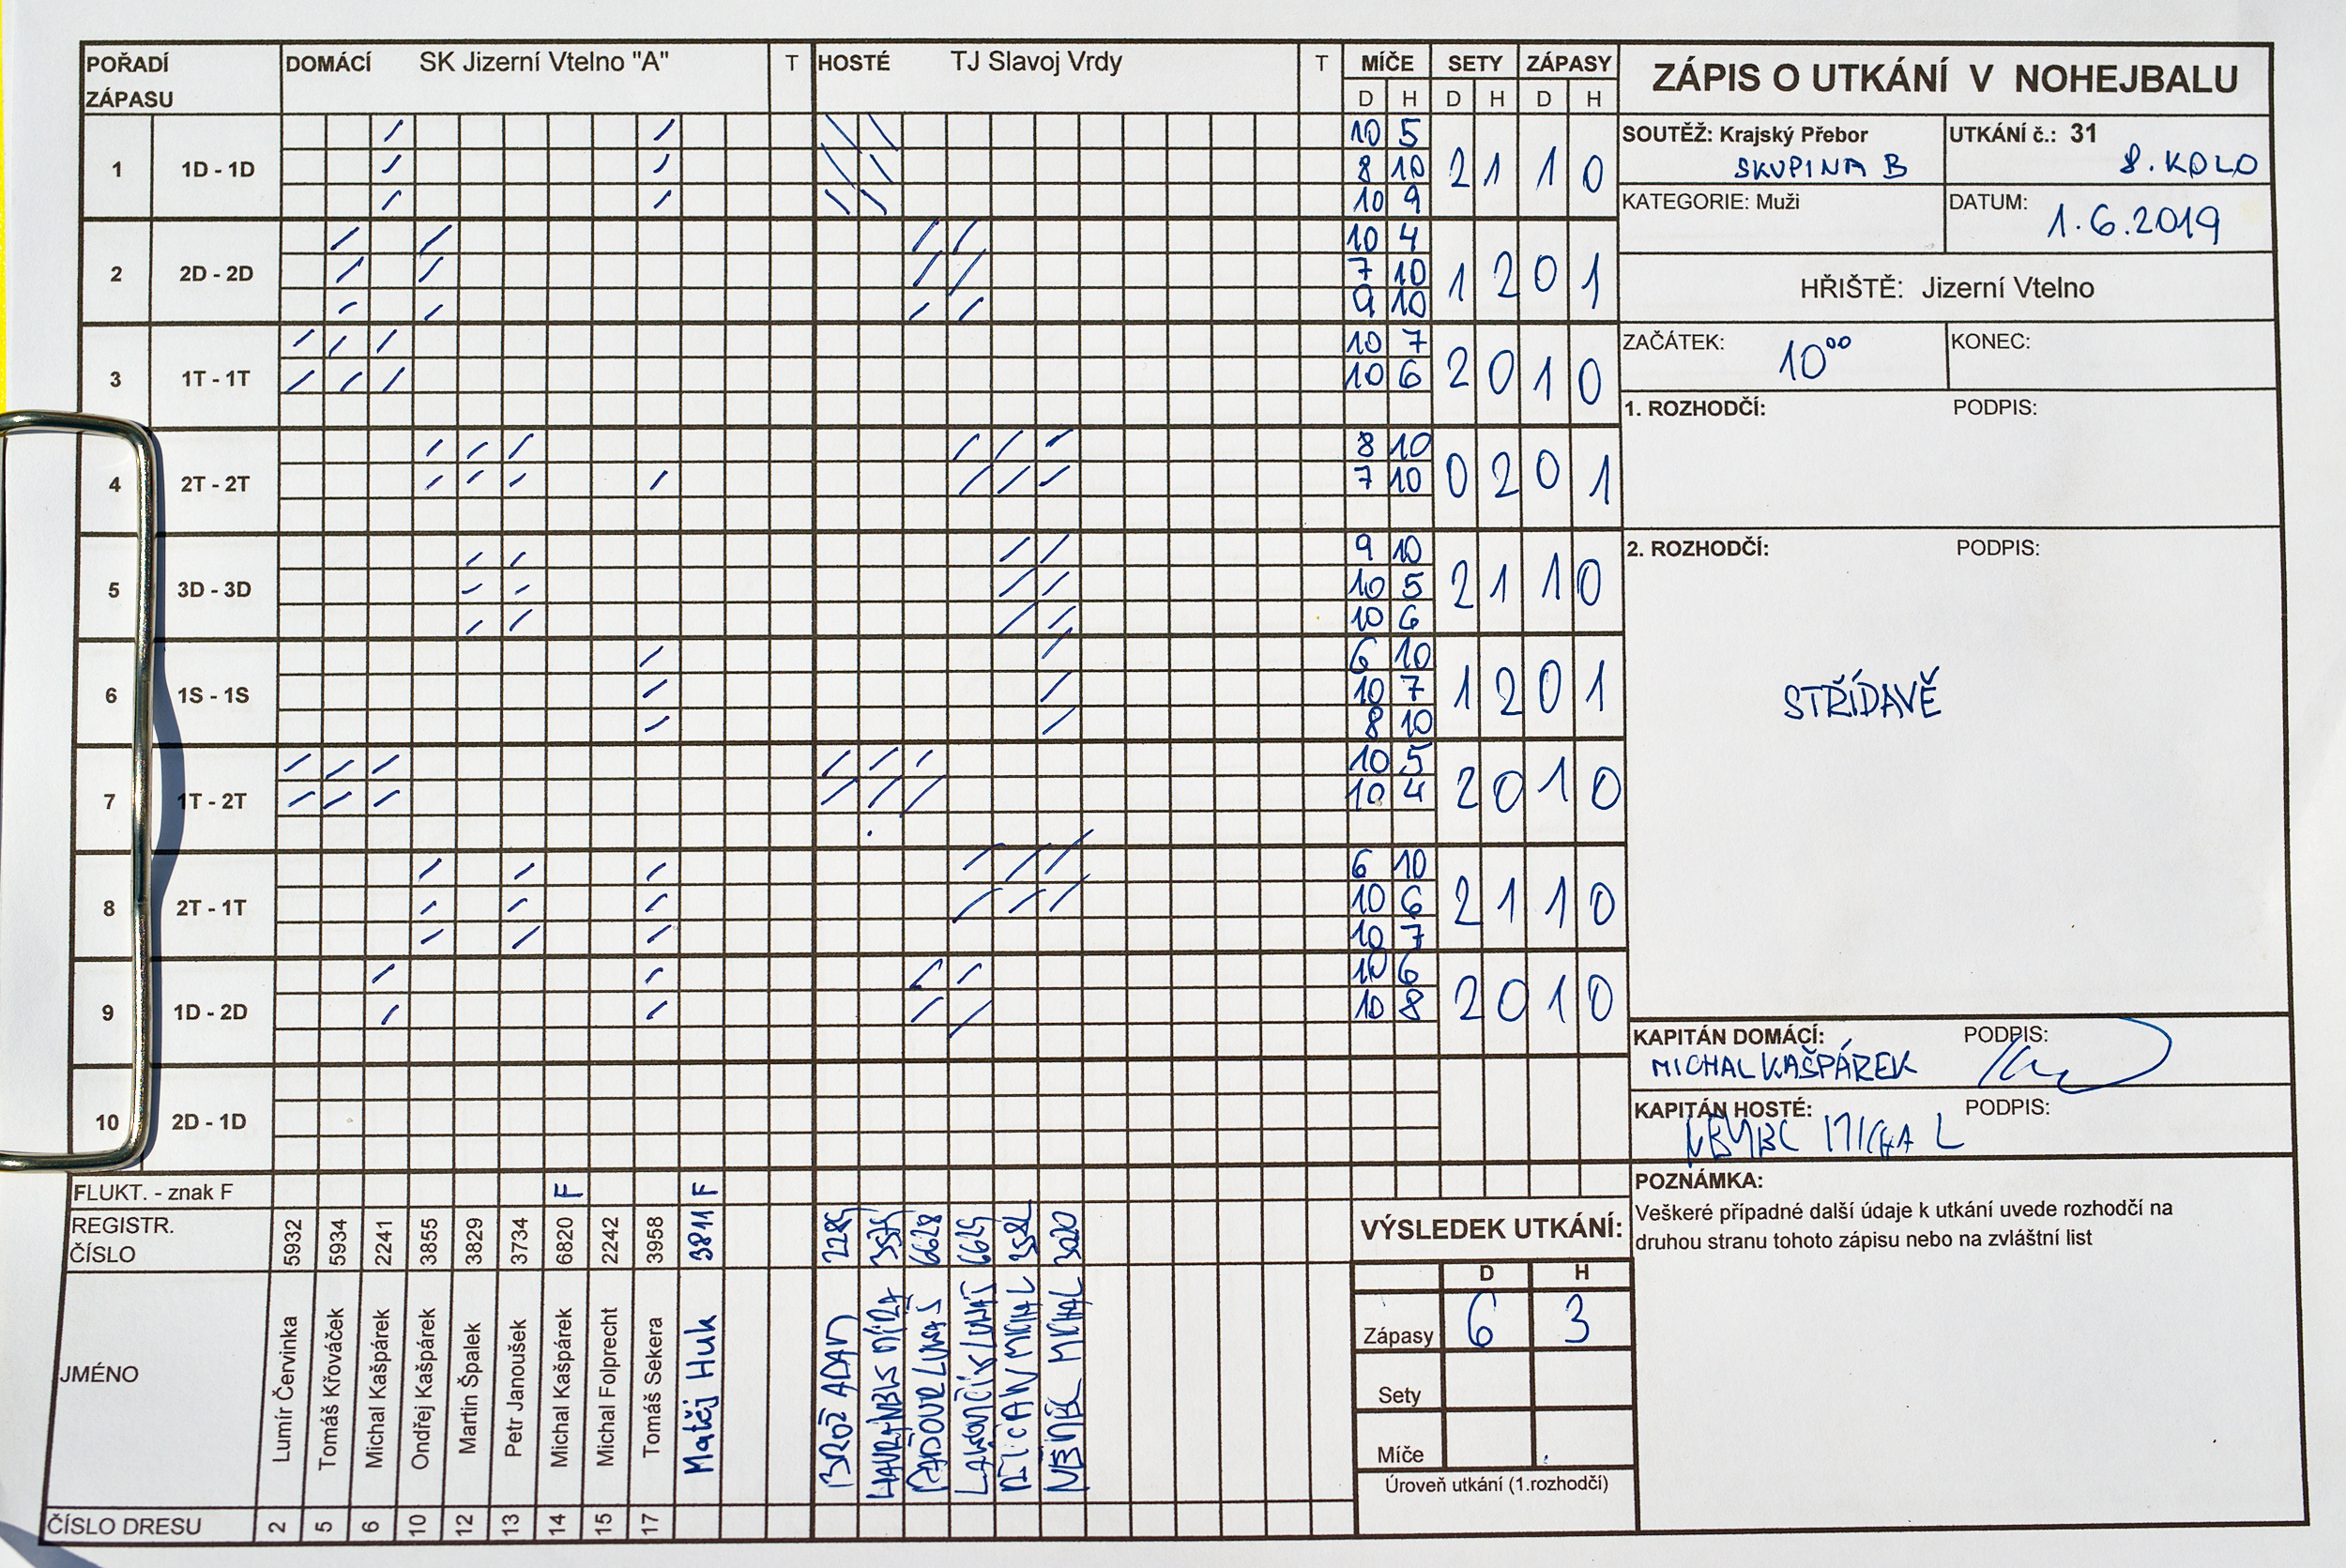 POŘADÍ ZÁPASU DOMÁCÍ SK Jizerní Vtelno "A" T HOSTÉ TJ Slavoj Vrdy T MÍČE SETY ZÁPASY
D H D H D H
ZÁPIS O UTKÁNÍ V NOHEJBALU
SOUTĚŽ: Krajský Přebor
SKUPINA B
UTKÁNÍ č.: 31
8. KOLO
KATEGORIE: Muži
DATUM:
1.6.2019
HŘIŠTĚ: Jizerní Vtelno
ZAČÁTEK: 10⁰⁰
KONEC:
1. ROZHODČÍ: PODPIS:
2. ROZHODČÍ: PODPIS:
STŘÍDAVĚ
KAPITÁN DOMÁCÍ: PODPIS:
MICHAL KAŠPÁREK
KAPITÁN HOSTÉ: PODPIS:
MICHAL
POZNÁMKA:
Veškeré případné další údaje k utkání uvede rozhodčí na
druhou stranu tohoto zápisu nebo na zvláštní list
1 1D - 1D
10 5
8 10
10 9
2 1 1 0
2 2D - 2D
10 4
7 10
9 10
1 2 0 1
3 1T - 1T
10 7
10 6
2 0 1 0
4 2T - 2T
8 10
7 10
0 2 0 1
5 3D - 3D
9 10
10 5
10 6
2 1 1 0
6 1S - 1S
6 10
10 7
8 10
1 2 0 1
7 1T - 2T
10 5
10 4
2 0 1 0
8 2T - 1T
6 10
10 6
10 7
2 1 1 0
9 1D - 2D
10 6
10 8
2 0 1 0
10 2D - 1D
FLUKT. - znak F F F
REGISTR. ČÍSLO 5932 5934 2241 3855 3829 3734 6820 2242 3958 3811 6628 3020
JMÉNO
Lumír Červinka
Tomáš Křováček
Michal Kašpárek
Ondřej Kašpárek
Martin Špalek
Petr Janoušek
Michal Kašpárek
Michal Folprecht
Tomáš Sekera
Matěj Huk
BROŽ ADAM
MICHAL
MICHAL
ČÍSLO DRESU 2 5 6 10 12 13 14 15 17
VÝSLEDEK UTKÁNÍ:
D H
Zápasy 6 3
Sety
Míče
Úroveň utkání (1.rozhodčí)